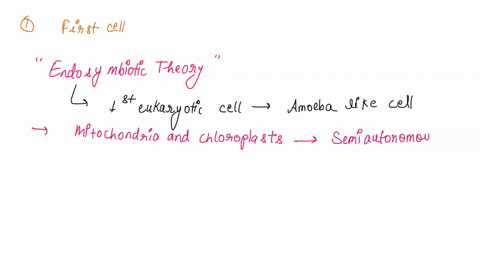 ① First cell
"Endosymbiotic Theory"
↳ 1st eukaryotic cell → Amoeba like cell
→ Mitochondria and chloroplasts → Semiautonomou